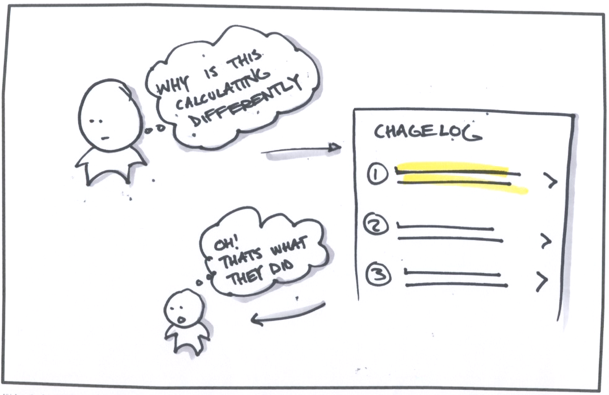 WHY IS THIS
CALCULATING
DIFFERENTLY
CHAGELOG
1
2
3
OH!
THATS WHAT
THEY DID